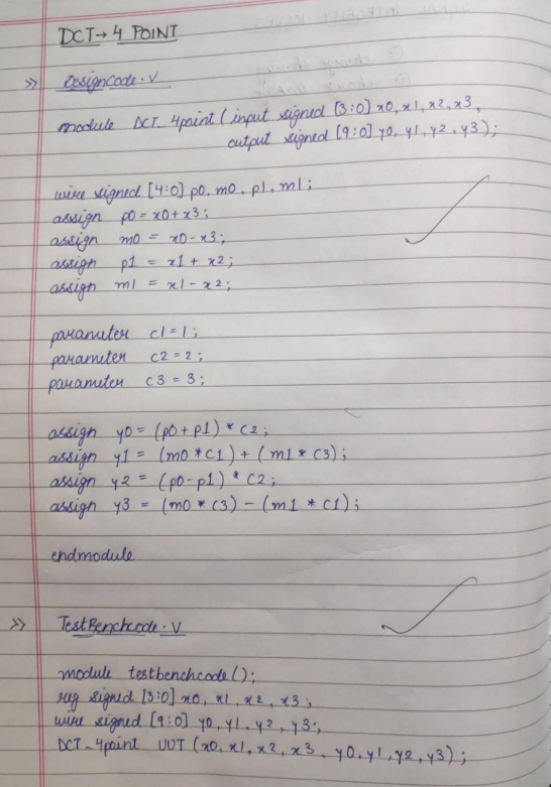 DCT → 4 POINT
>> DesignCode.v
module DCT_4point (input signed [3:0] x0, x1, x2, x3,
output signed [9:0] y0, y1, y2, y3);
wire signed [4:0] p0, m0, p1, m1;
assign p0 = x0 + x3;
assign m0 = x0 - x3;
assign p1 = x1 + x2;
assign m1 = x1 - x2;
parameter c1 = 1;
parameter c2 = 2;
parameter c3 = 3;
assign y0 = (p0 + p1) * c2;
assign y1 = (m0 * c1) + (m1 * c3);
assign y2 = (p0 - p1) * c2;
assign y3 = (m0 * c3) - (m1 * c1);
endmodule
>> TestBenchcode.v
module testbenchcode();
reg signed [3:0] x0, x1, x2, x3;
wire signed [9:0] y0, y1, y2, y3;
DCT_4point UUT (x0, x1, x2, x3, y0, y1, y2, y3);